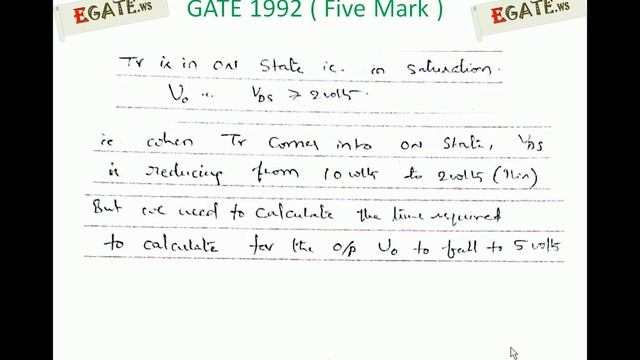 EGATE.WS
GATE 1992 ( Five Mark )
EGATE.WS
Tr is in ON State ie. in Saturation.
V₀ ie VDS ≥ 2 volts.
ie when Tr Comes into ON State, VDS
is reducing from 10 volts to 2 volts (Min)
But we need to calculate the time required
to calculate for the o/p V₀ to fall to 5 volts